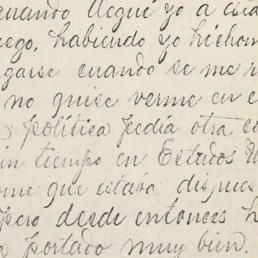 cuando llegué yo a esta
ego, habiendo yo hicho
garse cuando se me
no quise verme en e
política pedia otra co
in tiempo en Estados U
me que estaba dispues
Pero desde entonces h
a portado muy bien.